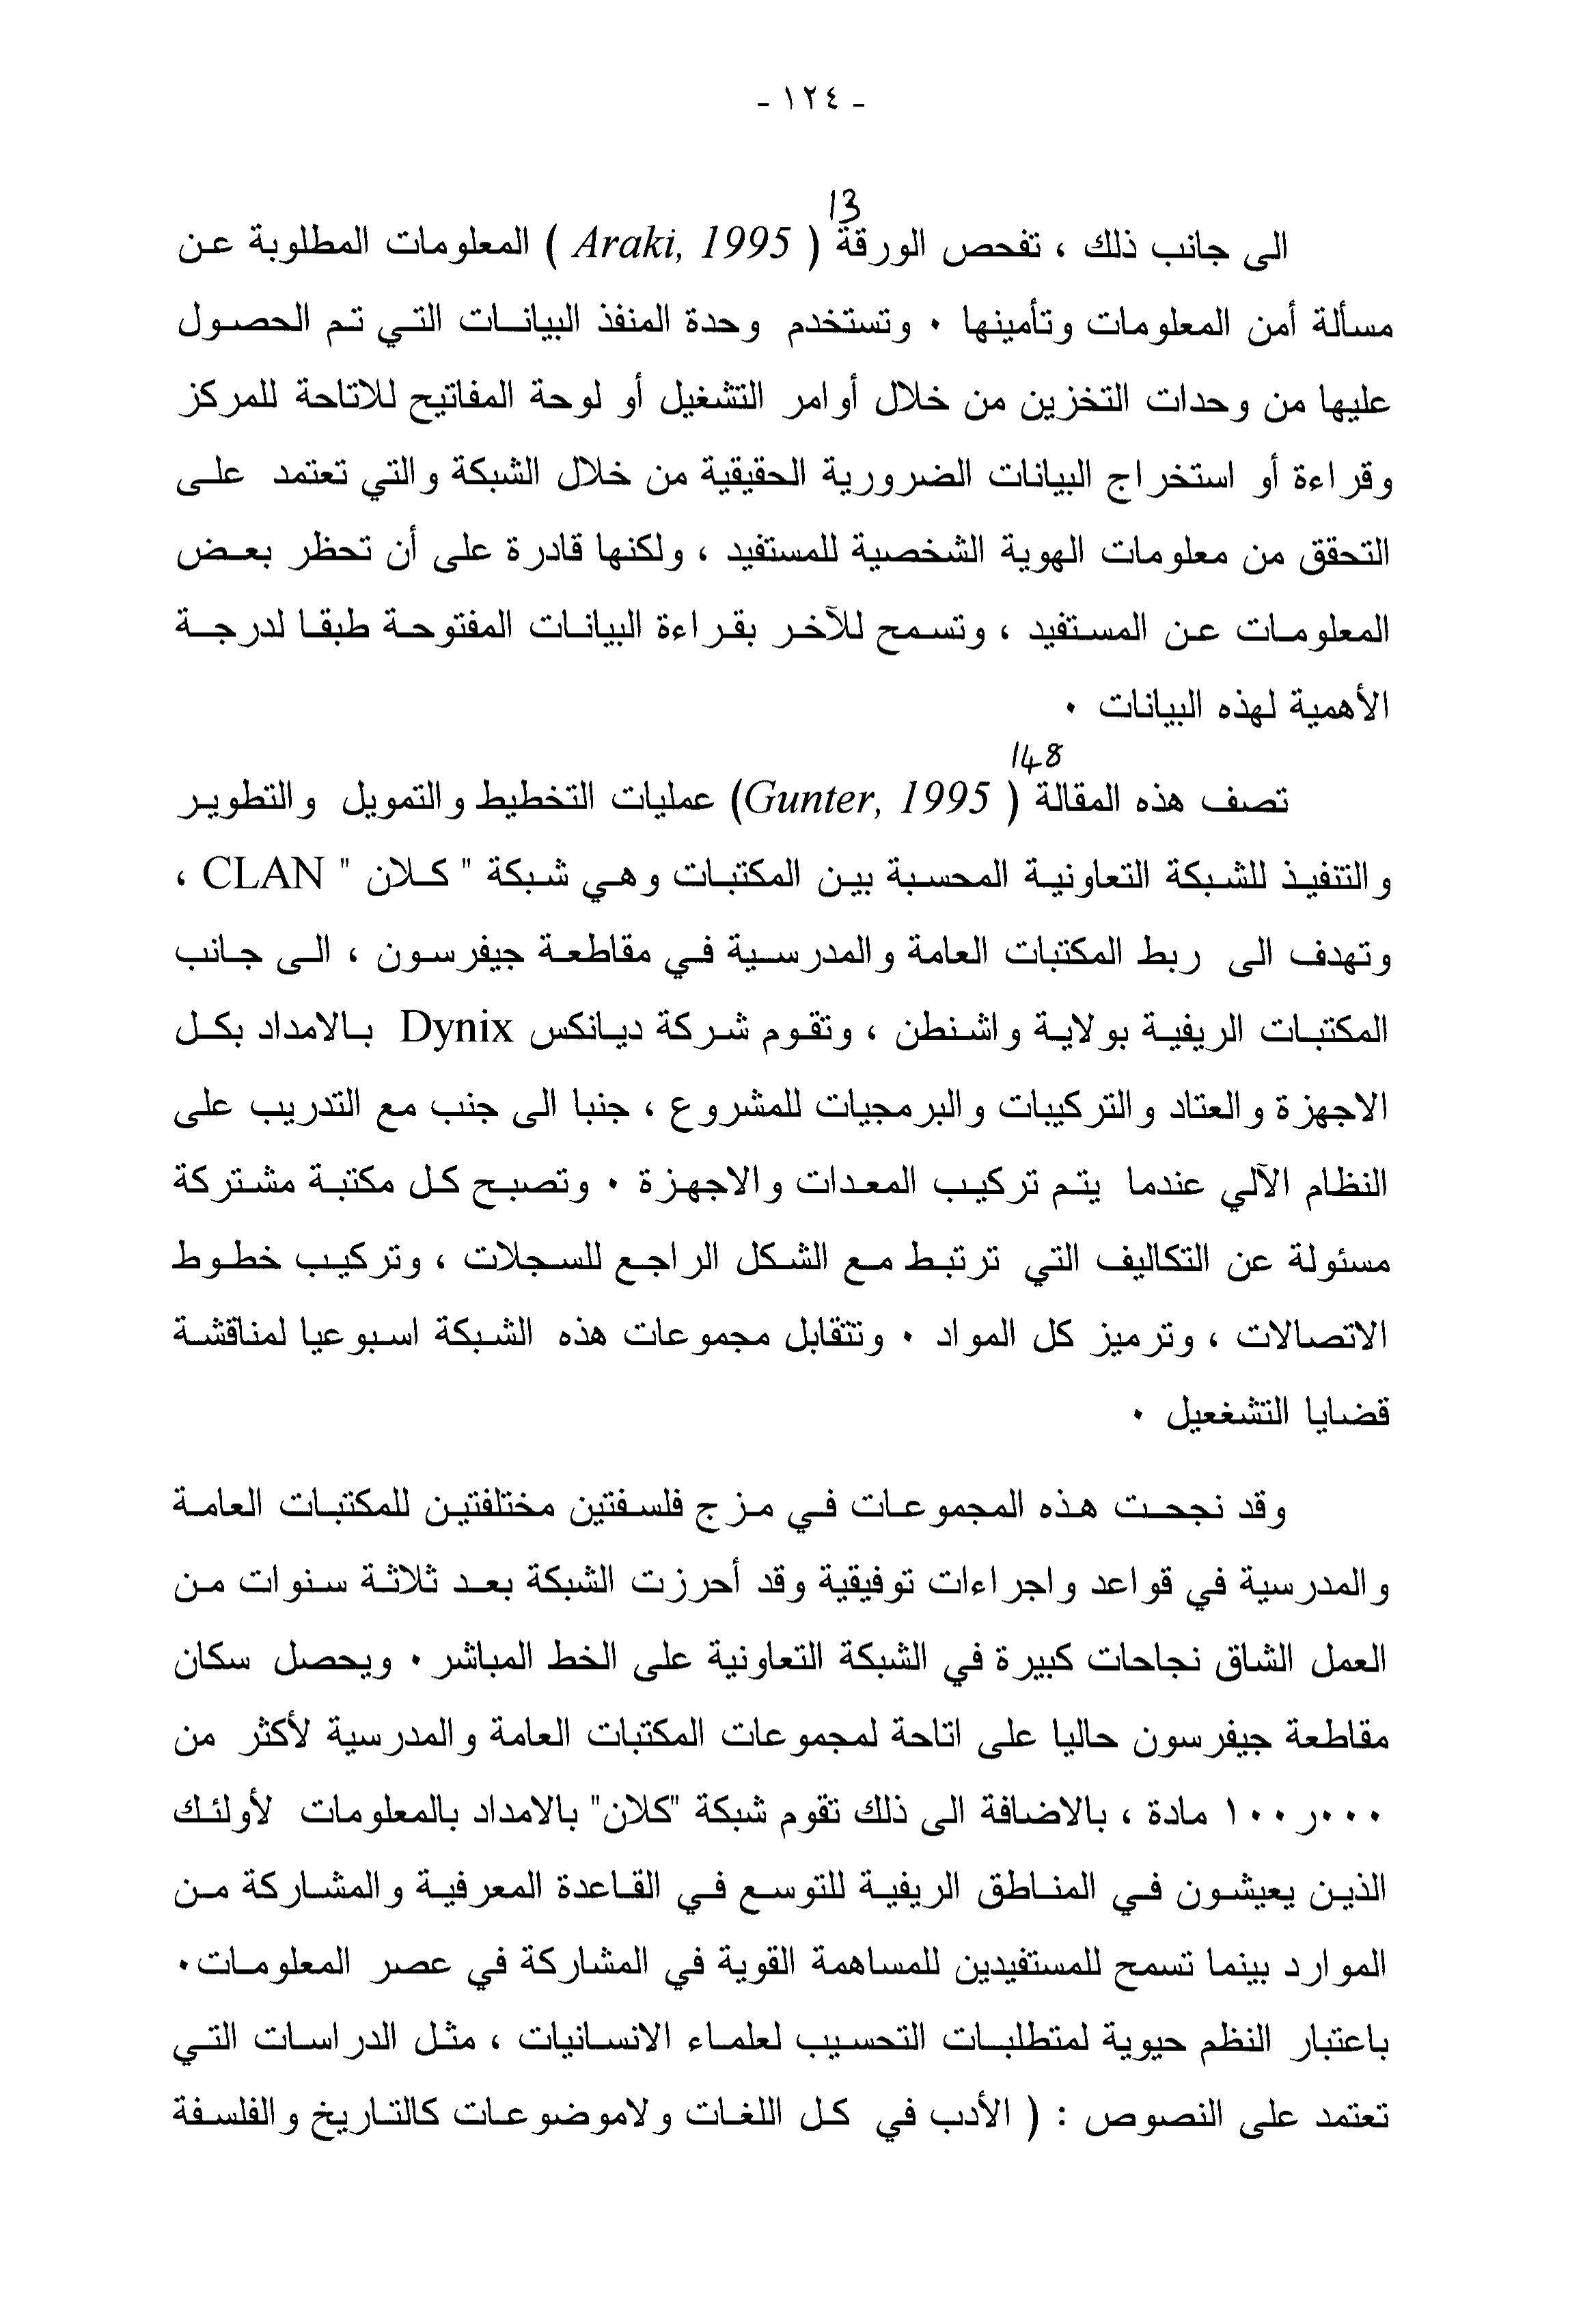 - ١٢٤ -
13
الى جانب ذلك ، تفحص الورقة ( Araki, 1995 ) المعلومات المطلوبة عن
مسألة أمن المعلومات وتأمينها ٠ وتستخدم وحدة المنفذ البيانات التي تم الحصول
عليها من وحدات التخزين من خلال أوامر التشغيل أو لوحة المفاتيح للاتاحة للمركز
وقراءة أو استخراج البيانات الضرورية الحقيقية من خلال الشبكة والتي تعتمد على
التحقق من معلومات الهوية الشخصية للمستفيد ، ولكنها قادرة على أن تحظر بعض
المعلومات عن المستفيد ، وتسمح للآخر بقراءة البيانات المفتوحة طبقا لدرجة
الأهمية لهذه البيانات ٠
148
تصف هذه المقالة ( Gunter, 1995) عمليات التخطيط والتمويل والتطوير
والتنفيذ للشبكة التعاونية المحسبة بين المكتبات وهي شبكة " كلان " CLAN ،
وتهدف الى ربط المكتبات العامة والمدرسية في مقاطعة جيفرسون ، الى جانب
المكتبات الريفية بولاية واشنطن ، وتقوم شركة ديانكس Dynix بالامداد بكل
الاجهزة والعتاد والتركيبات والبرمجيات للمشروع ، جنبا الى جنب مع التدريب على
النظام الآلي عندما يتم تركيب المعدات والاجهزة ٠ وتصبح كل مكتبة مشتركة
مسئولة عن التكاليف التي ترتبط مع الشكل الراجع للسجلات ، وتركيب خطوط
الاتصالات ، وترميز كل المواد ٠ وتتقابل مجموعات هذه الشبكة اسبوعيا لمناقشة
قضايا التشغعيل ٠
وقد نجحت هذه المجموعات في مزج فلسفتين مختلفتين للمكتبات العامة
والمدرسية في قواعد واجراءات توفيقية وقد أحرزت الشبكة بعد ثلاثة سنوات من
العمل الشاق نجاحات كبيرة في الشبكة التعاونية على الخط المباشر ٠ ويحصل سكان
مقاطعة جيفرسون حاليا على اتاحة لمجموعات المكتبات العامة والمدرسية لأكثر من
٠٠٠ر١٠٠ مادة ، بالاضافة الى ذلك تقوم شبكة "كلان" بالامداد بالمعلومات لأولئك
الذين يعيشون في المناطق الريفية للتوسع في القاعدة المعرفية والمشاركة من
الموارد بينما تسمح للمستفيدين للمساهمة القوية في المشاركة في عصر المعلومات٠
باعتبار النظم حيوية لمتطلبات التحسيب لعلماء الانسانيات ، مثل الدراسات التي
تعتمد على النصوص : ( الأدب في كل اللغات ولاموضوعات كالتاريخ والفلسفة